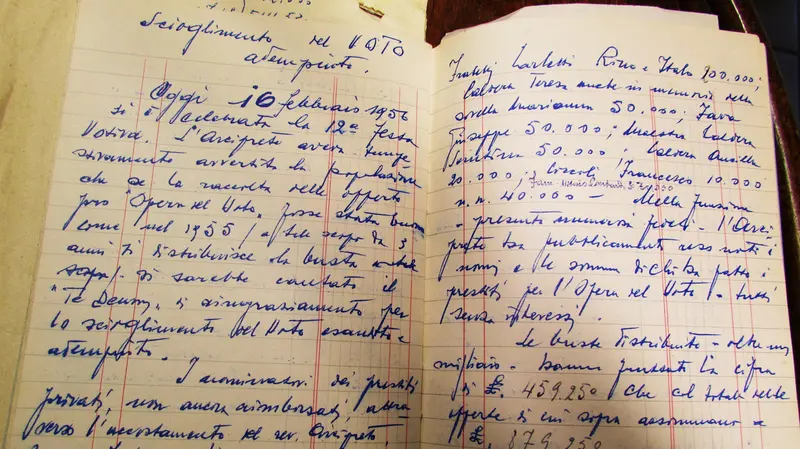 Scioglimento del VOTO
adempiuto.
Oggi 16 febbraio 1956
si è celebrata la 12a Festa
Votiva. L'Arciprete aveva
sivamente avvertito la popolazione
che se la raccolta delle offerte
pro "Opera del Voto" fosse stata buona
come nel 1955 / a tale scopo da 3
anni si distribuisce la busta a tale
scopo/ si sarebbe cantato il
"Te Deum" di ringraziamento per
lo scioglimento del Voto esaudito e
adempiuto.
I nominativi dei prestiti
privati, non ancora rimborsati,
verso l'accostamento del rev. Arciprete.
Fratelli Rino e Italo 100.000;
Caldera Teresa anche in memoria della
sorella Marianna 50.000; Fava
Giuseppe 50.000; Maestra Caldera
50.000; Caldera
20.000; Francesco 10.000
n.n. 40.000 - Nella funzione
- presenti numerosi fedeli - l'Arci
prete ha pubblicamente reso noti i
nomi e le somme di chi ha fatto i
prestiti per l'Opera del Voto - tutti
senza interessi.
Le buste distribuite - oltre un
migliaio - hanno fruttato la cifra
di £. 459.250 che col totale delle
offerte di cui sopra assommano a
£. 879.250